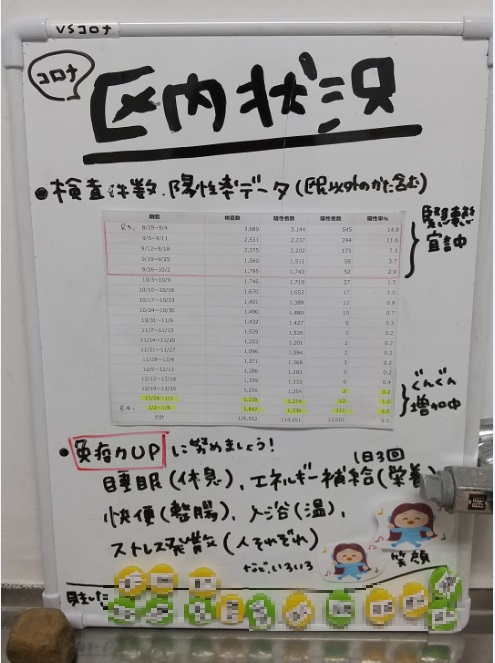 VSコロナ
コロナ
区内状況
●検査件数、陽性率データ(区民以外のかた含む)
期間 検査数 陰性者数 陽性者数 陽性率%
R3. 8/29~9/4 3,689 3,144 545 14.8
9/5~9/11 2,531 2,237 294 11.6
9/12~9/18 2,375 2,202 173 7.3
9/19~9/25 1,569 1,511 58 3.7
9/26~10/2 1,795 1,743 52 2.9
緊急事態
宣言中
10/3~10/9 1,746 1,719 27 1.5
10/10~10/16 1,670 1,653 17 1.0
10/17~10/23 1,401 1,389 12 0.9
10/24~10/30 1,490 1,480 10 0.7
10/31~11/6 1,432 1,427 5 0.3
11/7~11/13 1,329 1,326 3 0.2
11/14~11/20 1,203 1,201 2 0.2
11/21~11/27 1,096 1,094 2 0.2
11/28~12/4 1,371 1,368 3 0.2
12/5~12/11 1,286 1,283 3 0.2
12/12~12/18 1,339 1,333 6 0.4
12/19~12/25 1,256 1,254 2 0.2
12/26~1/1 1,228 1,216 12 1.0
R4. 1/2~1/8
合計
ぐんぐん
増加中
●免疫力UPに努めましょう!
1日3回
睡眠(休息)、エネルギー補給(栄養)
快便(整腸)、入浴(温)、
ストレス発散(人それぞれ)
などいろいろ
笑顔
見ました